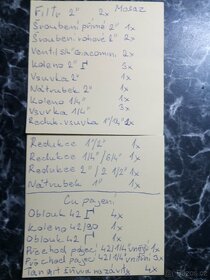 Filtr 2" 2x Mosaz
Šroubení přímé 2" 1x
Šroubení rohové 2" 2x
Ventil 5/4" Giacomini 2x
Koleno 2" 3x
Vsuvka 2" 1x
Nátrubek 2" 1x
Koleno 1/4" 1x
Vsuvka 1/4" 3x
Reduk. vsuvka 1"/2" 2x
Redukce 1"/2" 1x
Redukce 1/4"/6/4" 1x
Redukce 2"/2 1/2" 1x
Nátrubek 1" 1x
Cu pájení
Oblouk 42 4x
Koleno 42/90 1x
Oblouk 42 1x
Přechod pájec 42/1/4" vnější 1x
Přechod pájec 42/1/4" vnitřní 3x
4x